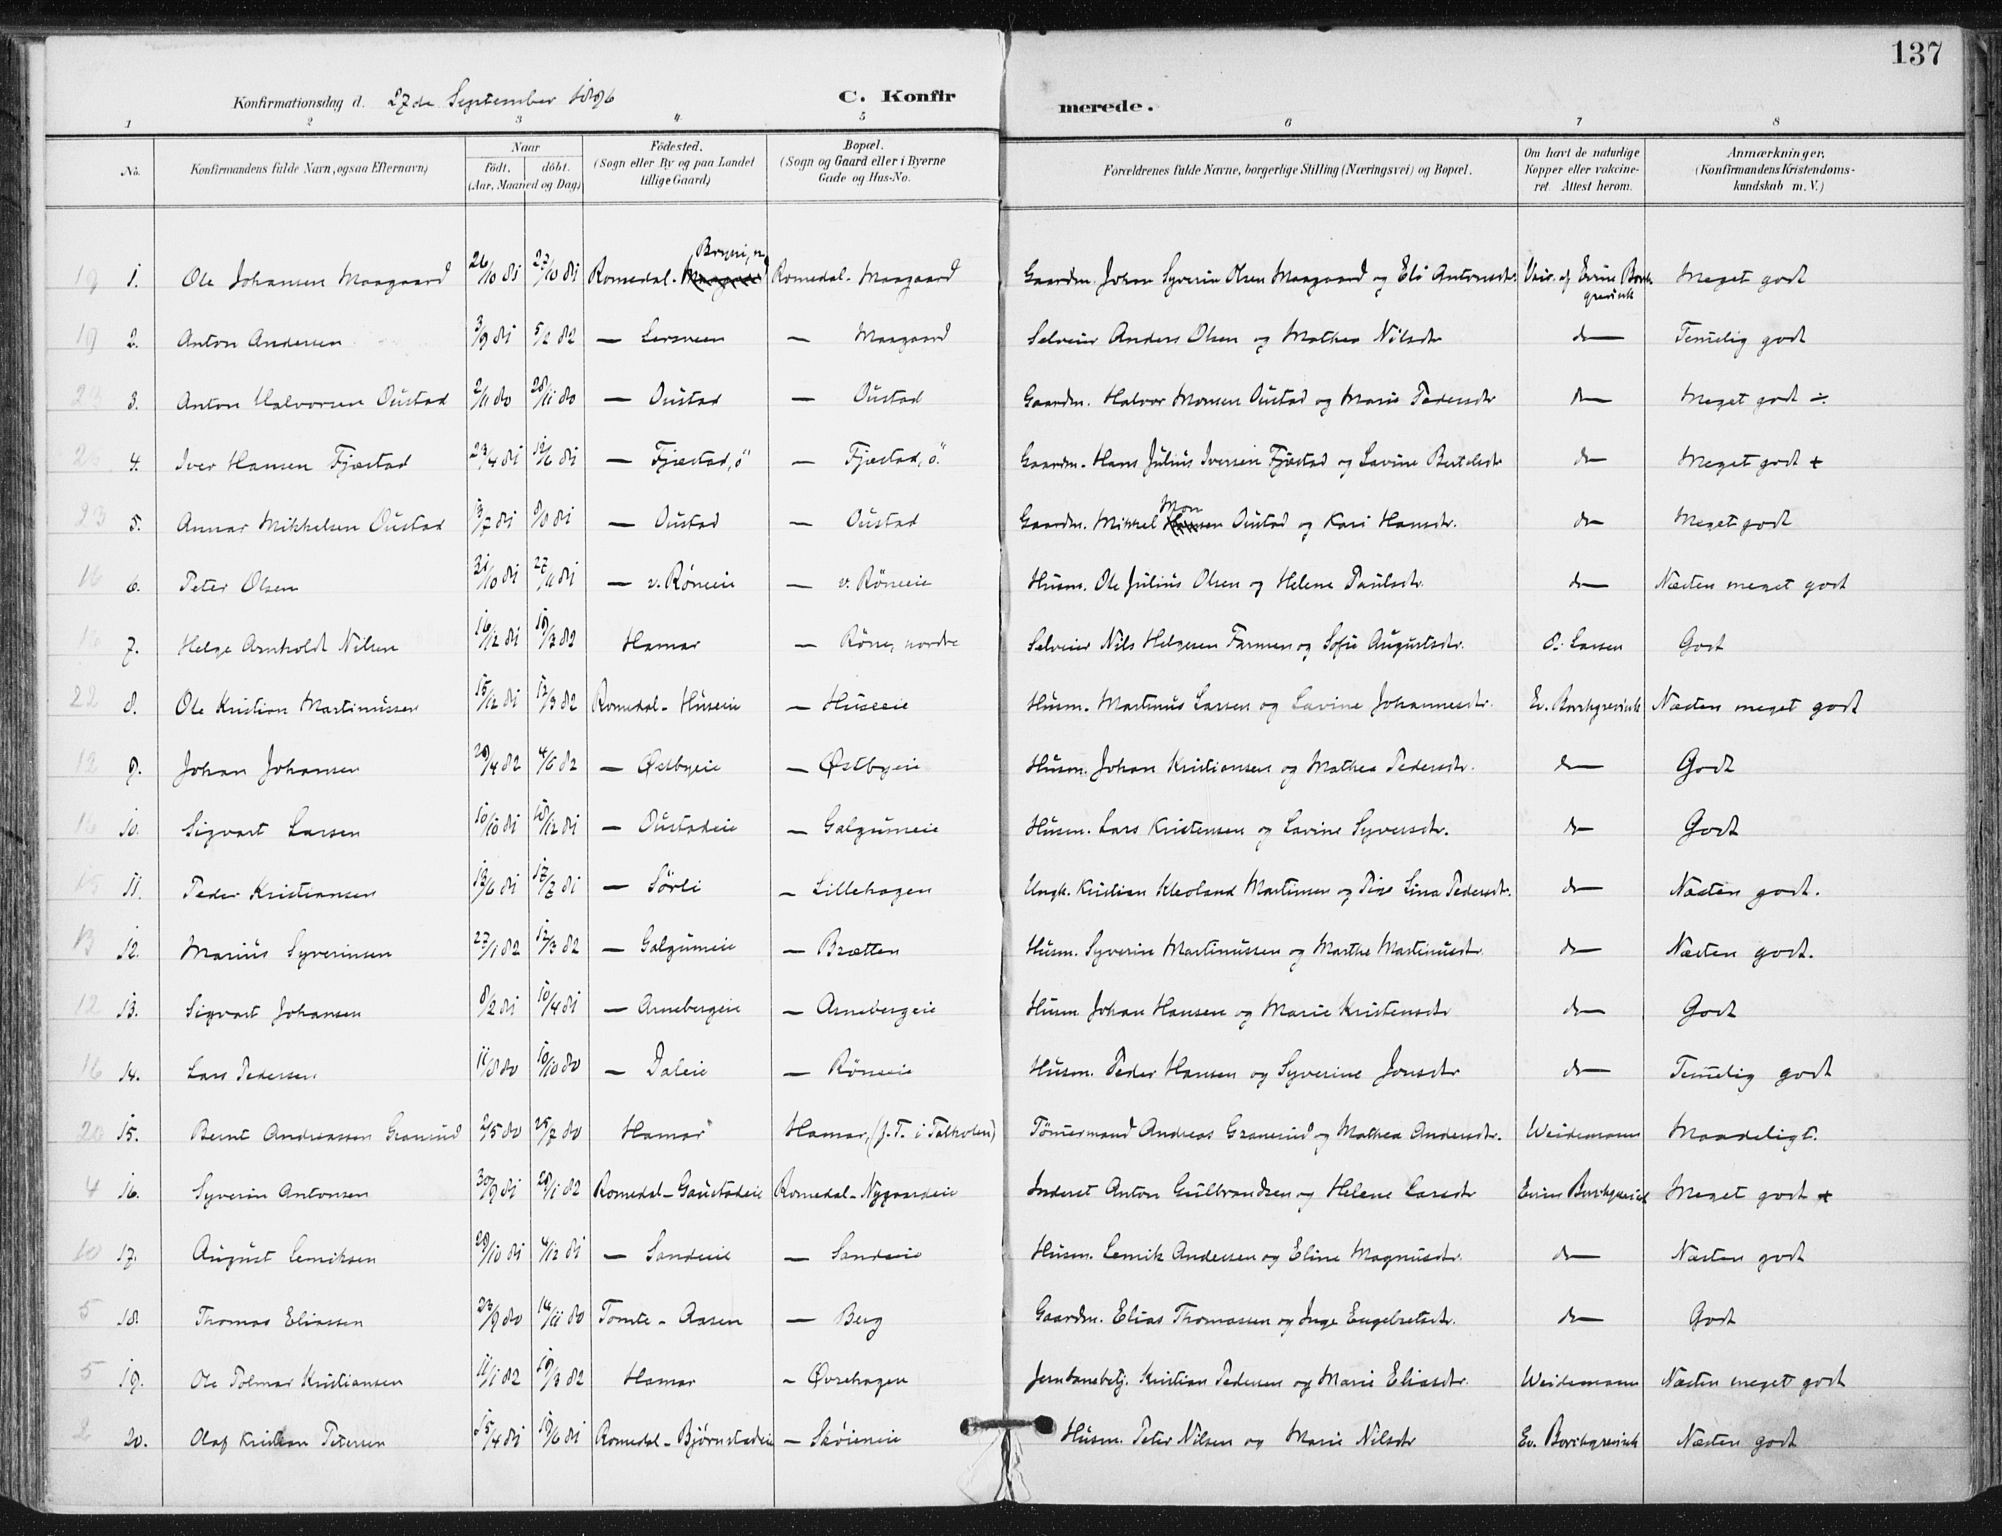 137
Konfirmationsdag d. 27de September 1896 C. Konfirmerede.
1 2 3 4 5 6 7 8
No. Konfirmandens fulde Navn, ogsaa Efternavn) Naar födt. döbt. (Aar, Maaned og Dag) Födested. (Sogn eller By og paa Landet tillige Gaard) Bopæl. (Sogn og Gaard eller i Byerne Gade og Hus-No. Forældrenes fulde Navne, borgerlige Stilling (Næringsvei) og Bopæl. Om havt de naturlige Kopper eller vakcineret. Attest herom. Anmærkninger, (Konfirmandens Kristendomskundskab m. V.)
19 1. Ole Johansen Maagaard 26/10 81 27/10 81 Romedal. Romedal. Maagaard Gaardm. Johan Syverin Olsen Maagaard og Eli Antonsdtr. Meget godt
19 2. Anton Andersen 3/9 81 5/2 82 — — Maagaard Selveier Anders Olsen og Mathea Nilsdtr do Temelig godt
3. Anton Halvorsen Oustad 2/11 80 28/11 80 — Oustad — Oustad Gaardm. Halvor Monsen Oustad og Marie Pedersdtr do Meget godt ÷
4. Iver Hansen Fjæstad 23/4 81 12/6 81 — Fjæstad, ö — Fjæstad, ö. Gaardm. Hans Julius Iversen Fjæstad og Lavine Bertelsdtr do Meget godt +
23 5. Annar Mikkelsen Oustad 13/7 81 9/8 81 — Oustad — Oustad Gaardm. Mikkel Monsen Oustad og Kari Hansdtr. do Meget godt
16 6. Peter Olsen 31/10 81 27/11 81 — v. Röneeie — v. Röneeie Husm. Ole Julius Olsen og Helene Paulsdtr. do Næsten meget godt
16 7. Helge Arnholdt Nilsen 16/12 81 19/3 82 Hamar — Röne, nordre Selveier Nils Helgesen Farmen og Sofie Augustsdtr. O. Larsen Godt
22 8. Ole Kristian Martinussen 15/12 81 12/3 82 Romedal - Huseeie — Huseeie Husm. Martinus Larsen og Lavine Johannesdtr. Ev. Borchgrevink Næsten meget godt
12 9. Johan Johansen 29/4 82 4/6 82 — Østbyeie — Østbyeie Husm. Johan Kristiansen og Mathea Pedersdtr. do Godt
16 10. Sigvart Larsen 10/10 81 18/12 81 — Oustadeie — Galgumeie Husm. Lars Kristensen og Lavine Syversdtr. do Godt
15 11. Peder Kristiansen 13/6 81 17/7 81 — Sörli — Lillehagen Ungk. Kristian Kleoland Martinsen og Pige Lina Pedersdtr. do Næsten godt.
13 12. Marius Syverinsen 27/1 82 12/3 82 — Galgumeie — Brætten Husm. Syverin Martinussen og Marthe Martinusdtr. do Næsten godt.
12 13. Sigvart Johansen 8/2 81 10/4 81 — Arnebergeie — Arnebergeie Husm Johan Hansen og Marie Kristensdtr do Godt
16 14. Lars Pedersen 11/8 80 10/10 80 — Daleie — Röneeie Husm. Peder Hansen og Syverine Jonsdtr do Temelig godt
20 15. Bernt Andreassen Granerud 2/5 80 25/7 80 Hamar Hamar, (J. T. i Talholen) Tömermand Andreas Granerud og Mathea Andersdtr. Weidemann Maadeligt.
4 16. Syverin Antonsen 30/9 81 29/1 82 Romedal - Gaustadeie Romedal - Nygaardeie Inderst Anton Gulbrandsen og Helene Larsdtr Meget godt +
10 17. August Lemiksen 29/10 81 4/12 81 — Sandeie — Sandeie Husm. Lemik Andersen og Eline Magnusdtr. do Næsten godt
5 18. Thomas Eliassen 23/9 80 14/11 80 Tomte - Aasen — Berg Gaardm. Elias Thomassen og Inge Engebretsdtr. do Godt
5 19. Ole Tolmar Kristiansen 11/1 82 19/3 82 Hamar - Øvrehagen Jernbanebetj. Kristian Pedersen og Marie Eliasdtr. Weidemann Næsten meget godt
2 20. Olaf Kristian Petersen 15/4 81 19/6 81 Romedal - Bjørnstadeie — Sköieneie Husm. Peter Nilsen og Marie Nilsdtr Ev. Borchgrevink Næsten godt